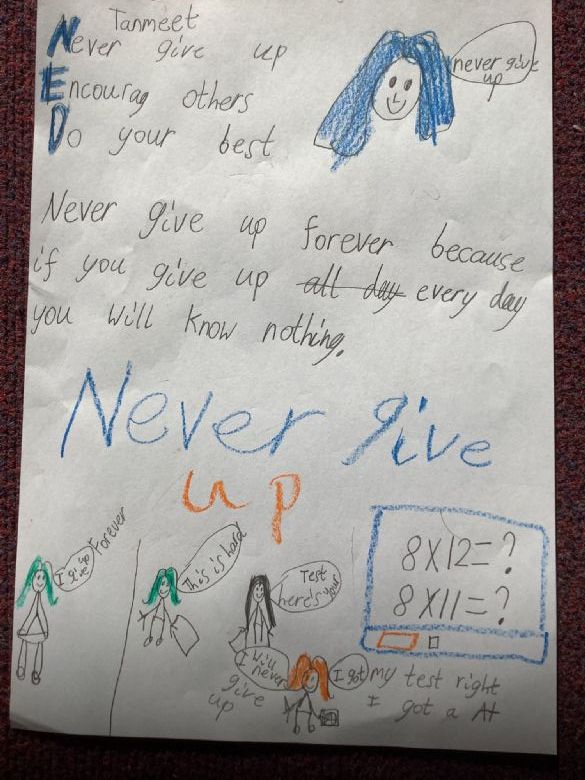 Tanmeet
Never give up
Encourag others
Do your best
never give
up
Never give up forever because
if you give up all day every day
you will know nothing.
Never give
up
I give up forever
This is hard
Test
here's your
8X12=?
8X11=?
I will
never
give
up
I got my test right
I got a A+